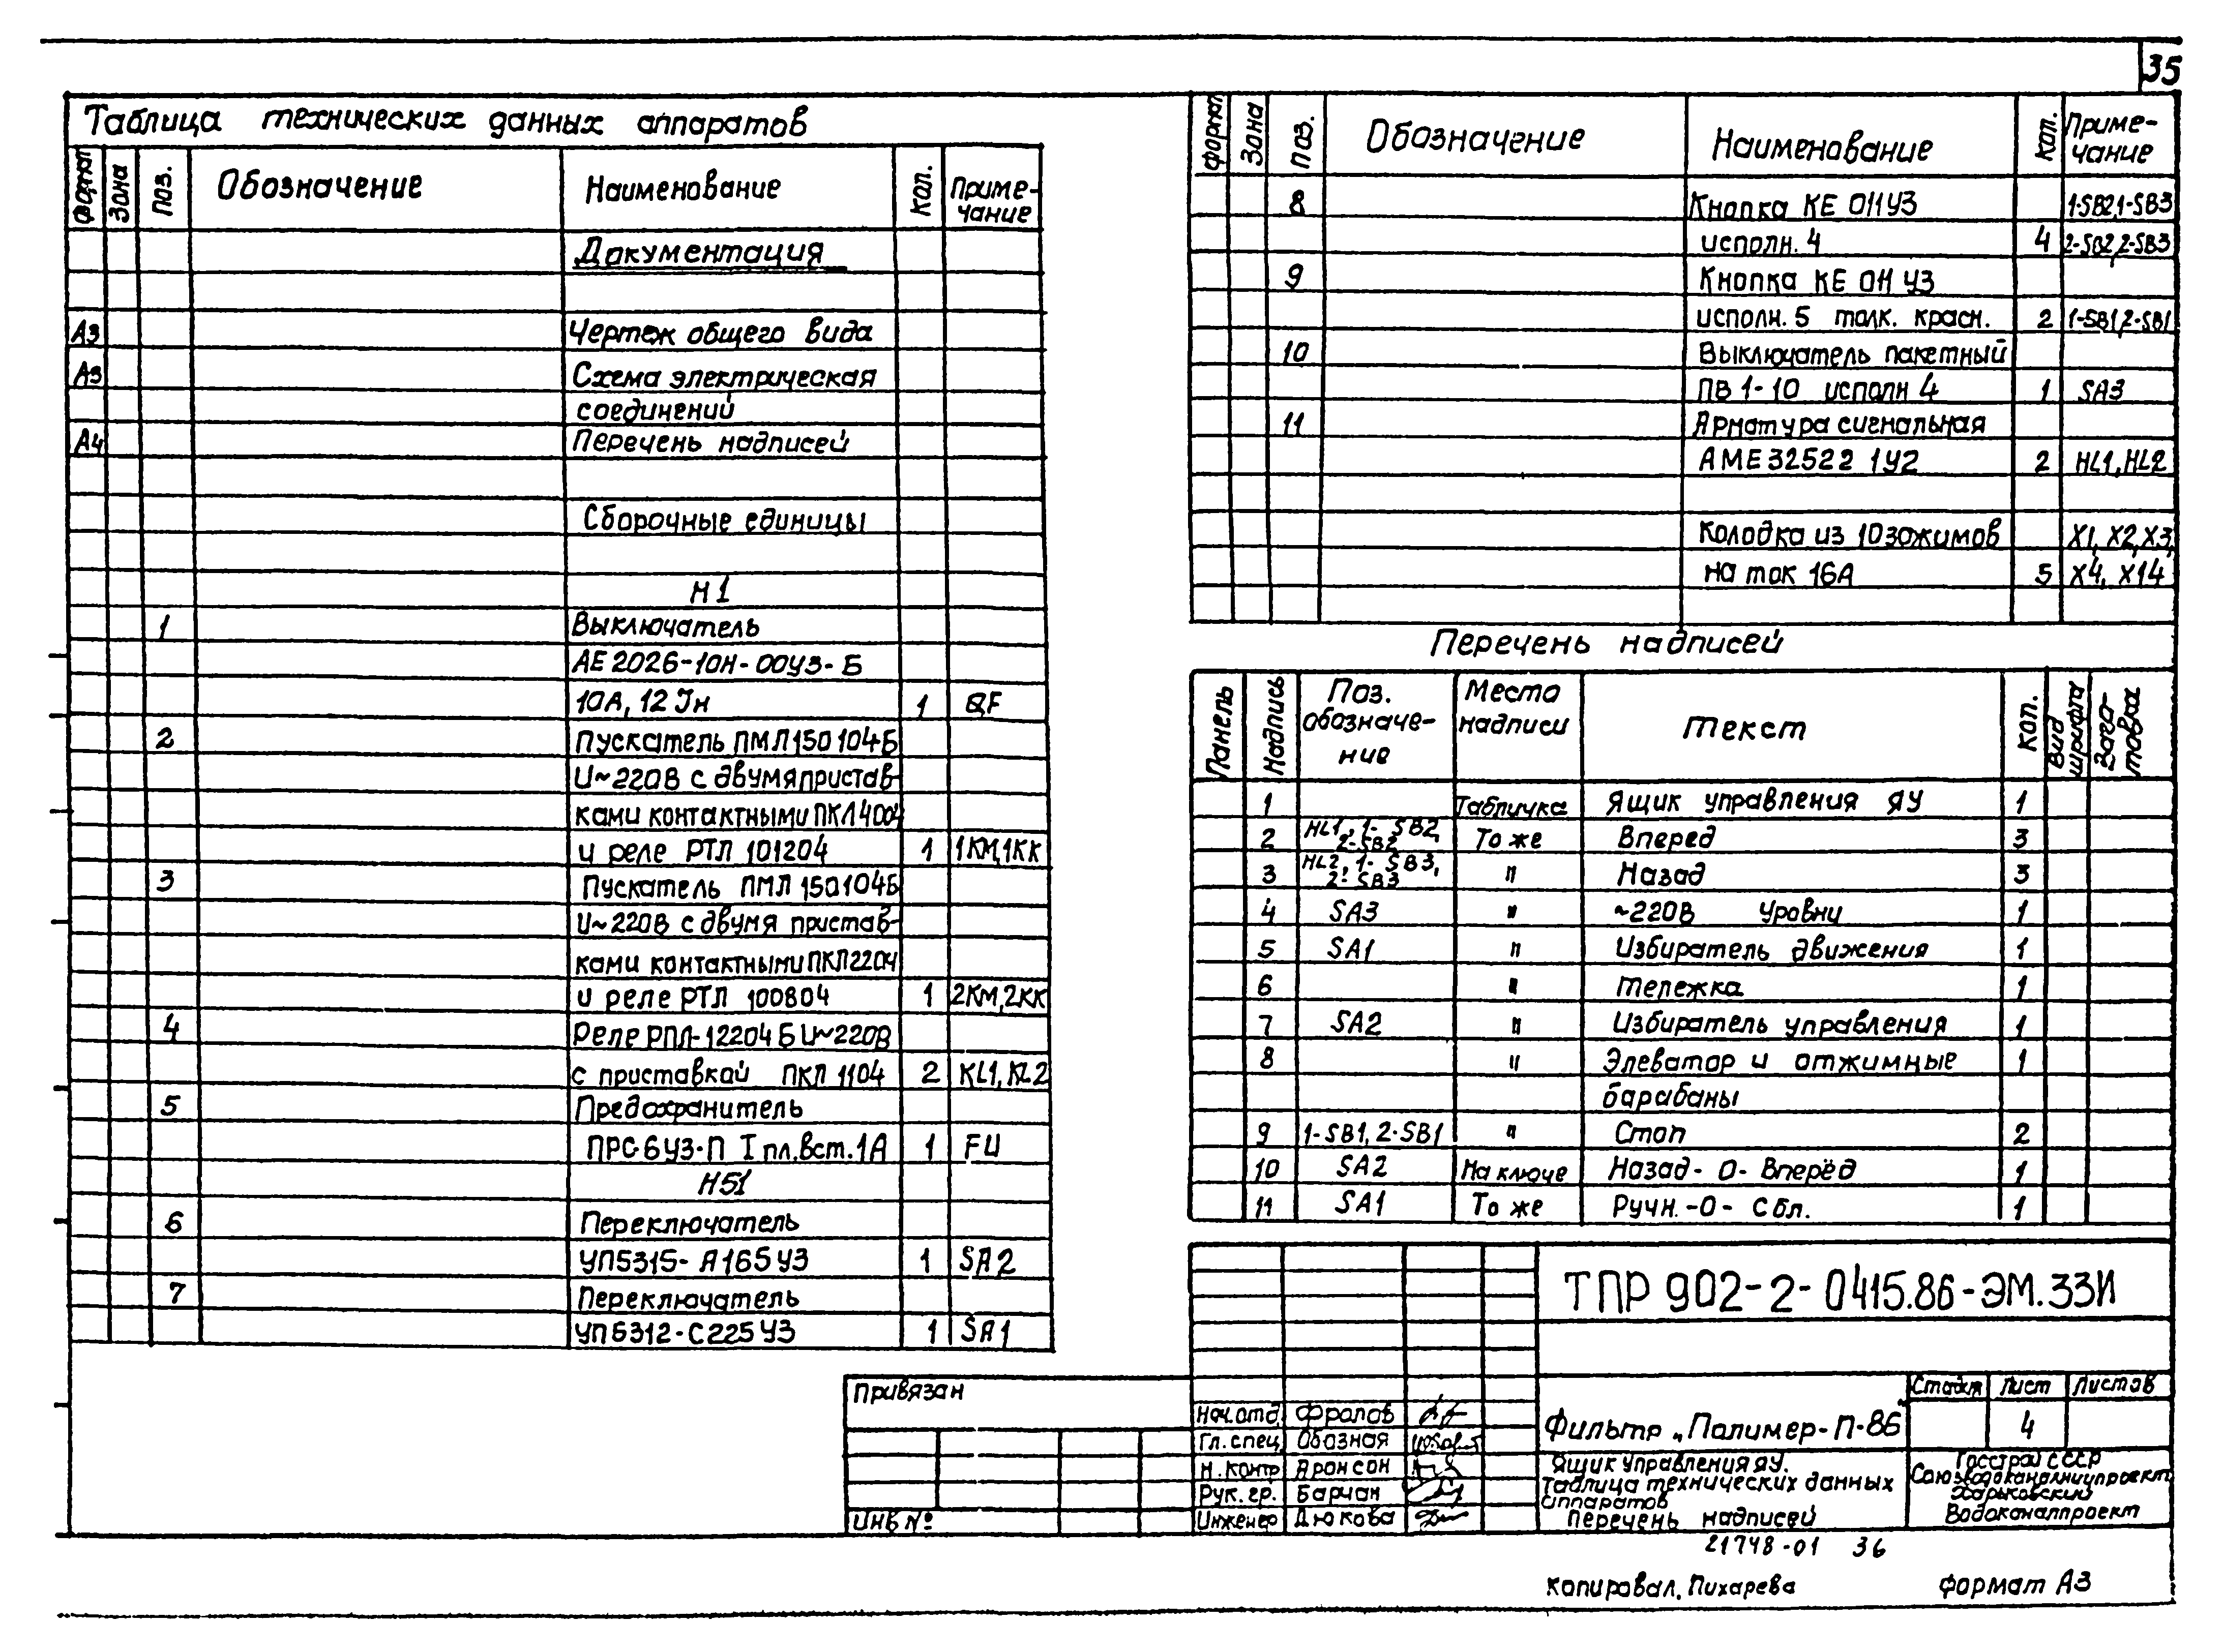 35
Таблица технических данных аппаратов
Формат Зона Поз. Обозначение Наименование Кол. Приме-
чание
Документация
А3 Чертеж общего вида
А3 Схема электрическая
соединений
А4 Перечень надписей
Сборочные единицы
Н1
1 Выключатель
АЕ 2026-10Н-00У3-Б
10А, 12 Iн 1 QF
2 Пускатель ПМЛ 150104Б
U~220В с двумя пристав-
ками контактными ПКЛ 4004
и реле РТЛ 101204 1 1КМ,1КК
3 Пускатель ПМЛ 150104Б
U~220В с двумя пристав-
ками контактными ПКЛ2204
и реле РТЛ 100804 1 2КМ,2КК
4 Реле РПЛ-12204 Б U~220В
с приставкой ПКЛ 1104 2 KL1, KL2
5 Предохранитель
ПРС-6У3-П I пл.вст.1А 1 FU
Н51
6 Переключатель
УП5315-А165У3 1 SA2
7 Переключатель
УП5312-С225У3 1 SA1
Формат Зона Поз. Обозначение Наименование Кол. Приме-
чание
8 Кнопка КЕ 011У3 1-SB2,1-SB3
исполн. 4 4 2-SB2,2-SB3
9 Кнопка КЕ 011 У3
исполн. 5 толк. красн. 2 1-SB1,2-SB1
10 Выключатель пакетный
ПВ 1-10 исполн 4 1 SA3
11 Арматура сигнальная
АМЕ 32522 1У2 2 HL1, HL2
Колодка из 10 зажимов X1, X2, X3,
на ток 16А 5 X4, X14
Перечень надписей
Панель Надпись Поз.
обозначе-
ние Место
надписи Текст Кол. Вид
шрифта Заго-
товка
1 Табличка Ящик управления ЯУ 1
2 HL1, 1-SB2,
2-SB2 То же Вперед 3
3 HL2, 1-SB3,
2-SB3 " Назад 3
4 SA3 " ~220В Уровни 1
5 SA1 " Избиратель движения 1
6 " Тележка 1
7 SA2 " Избиратель управления 1
8 " Элеватор и отжимные 1
барабаны
9 1-SB1, 2-SB1 " Стоп 2
10 SA2 На ключе Назад-0-Вперёд 1
11 SA1 То же Ручн.-0-Сбл. 1
ТПР 902-2-0415.86-ЭМ.33И
Привязан
Инв №
Нач.отд. Фролов
Гл.спец. Обозная
Н.контр Аронсон
Рук.гр. Барчан
Инженер Дюкова
Фильтр „Полимер-П-86"
Стадия Лист Листов
4
Ящик управления ЯУ.
Таблица технических данных
аппаратов
Перечень надписей
Госстрой СССР
Союзводоканалниипроект
Харьковский
Водоканалпроект
21748-01 36
Копировал, Пихарева Формат А3